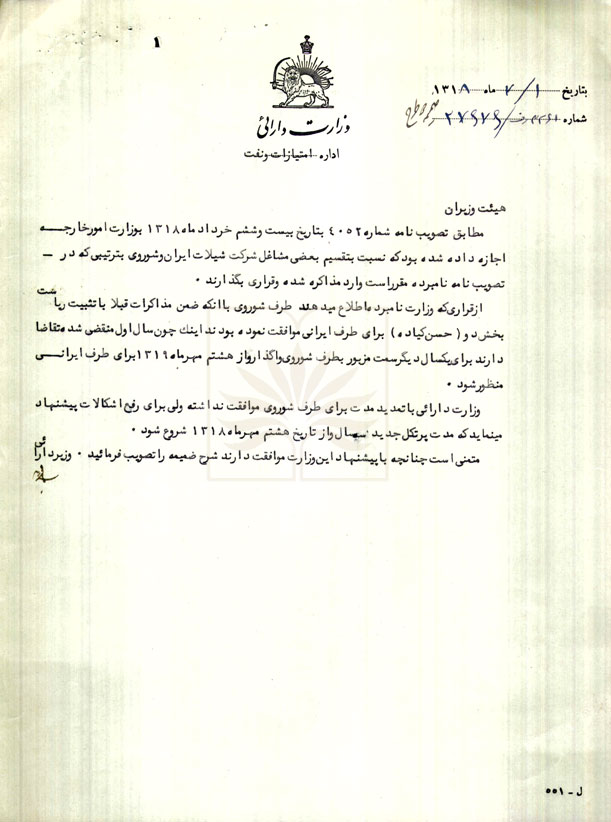 ۱
بتاریخ ۷/۱ ماه ۱۳۱۸
شماره ۲۷۹۷۹
وزارت دارائی
اداره امتیازات و نفت
هیئت وزیران
مطابق تصویب نامه شماره ۴۰۵۲ بتاریخ بیست وششم خرداد ماه ۱۳۱۸ بوزارت امورخارجه
اجازه داده شده بود که نسبت بتقسیم بعضی مشاغل شرکت شیلات ایران وشوروی بترتیبی که در –
تصویب نامه نامبرده مقرراست وارد مذاکره شده وقراری بگذارند ۰
ازقراری که وزارت نامبرده اطلاع میدهند طرف شوروی باانکه ضمن مذاکرات قبلا با تثبیت ریاست
بخش دو ( حسن کیاده ) برای طرف ایرانی موافقت نموده بودند اینك چون سال اول منقضی شده تقاضا
دارند برای یکسال دیگر سمت مزبور بطرف شوروی واگذار واز هشتم مهرماه ۱۳۱۹ برای طرف ایرانی
منظور شود ۰
وزارت دارائی با تمدید مدت برای طرف شوروی موافقت نداشته ولی برای رفع اشکالات پیشنهاد
مینماید که مدت پرتکل جدید سه سال واز تاریخ هشتم مهرماه ۱۳۱۸ شروع شود ۰
متمنی است چنانچه با پیشنهاد این وزارت موافقت دارند شرح ضمیمه را تصویب فرمائید ۰ وزیردارائی
ل – ۵۵۱